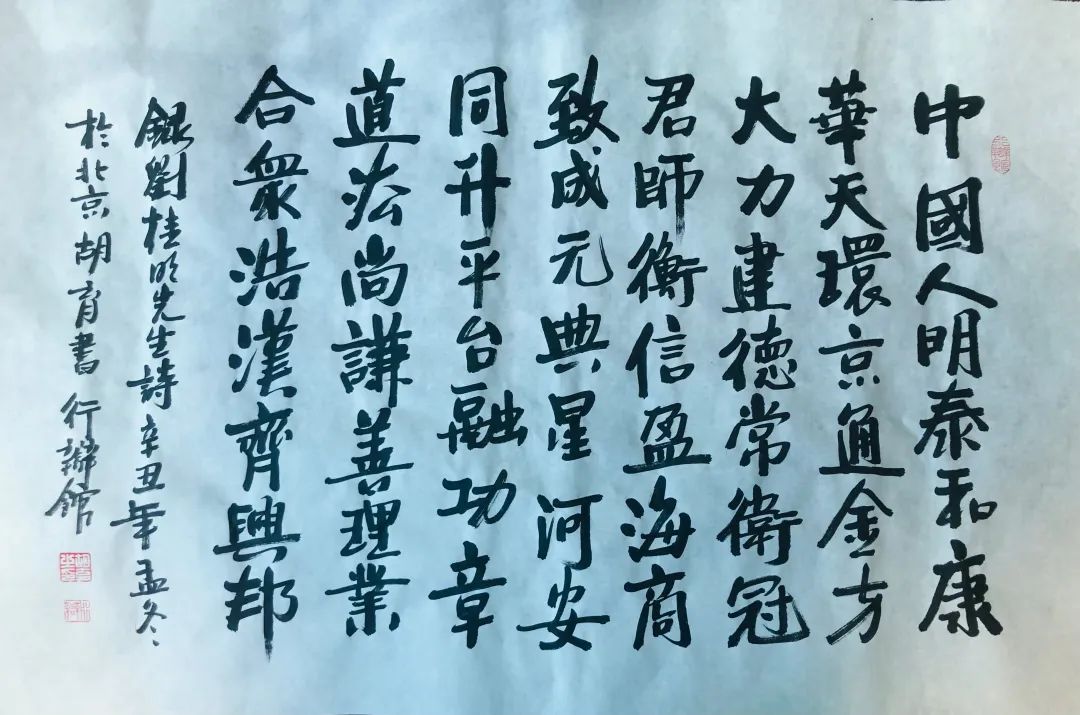 中國人明泰和康
華天環京通金方
大力建德常衛冠
君師衡信盈海商
致成元典星河安
同升平台融功章
道法尚謙善理業
合衆浩漢齊興邦
録劉桂明先生詩辛丑年孟冬
於北京胡育書行辦館